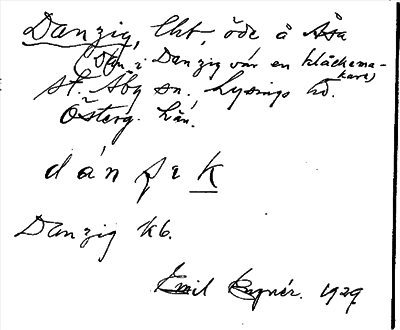 Danzig, lht, öde å Åsa
(Dan i Danzig var en klåckema-
kare)
st. Åby sn. Lysings hd.
Österg. län.
d á n s ɩ k
Danzig kb.
Emil 1929.